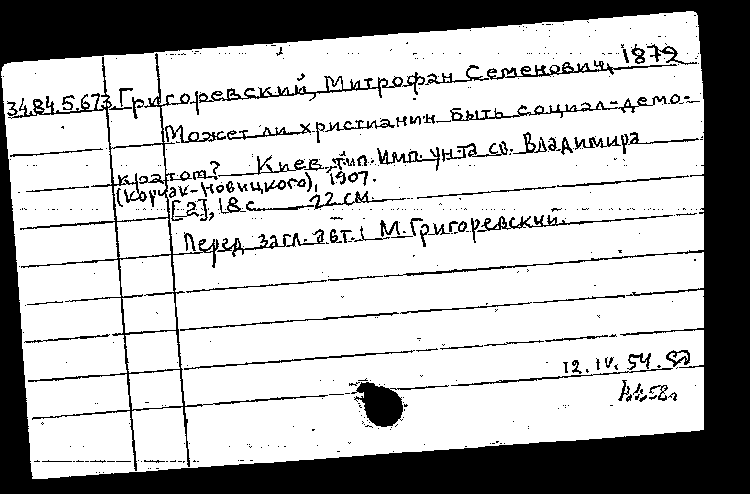 3484.5.673 Григоревский, Митрофан Семенович, 1872
Может ли христианин быть социал-демо-
кратом? Киев, тип. Имп. ун-та св. Владимира
(Корчак-Новицкого), 1907.
[2], 18 с. 22 см.
Перед загл. авт.: М. Григоревский.
12.IV.54.